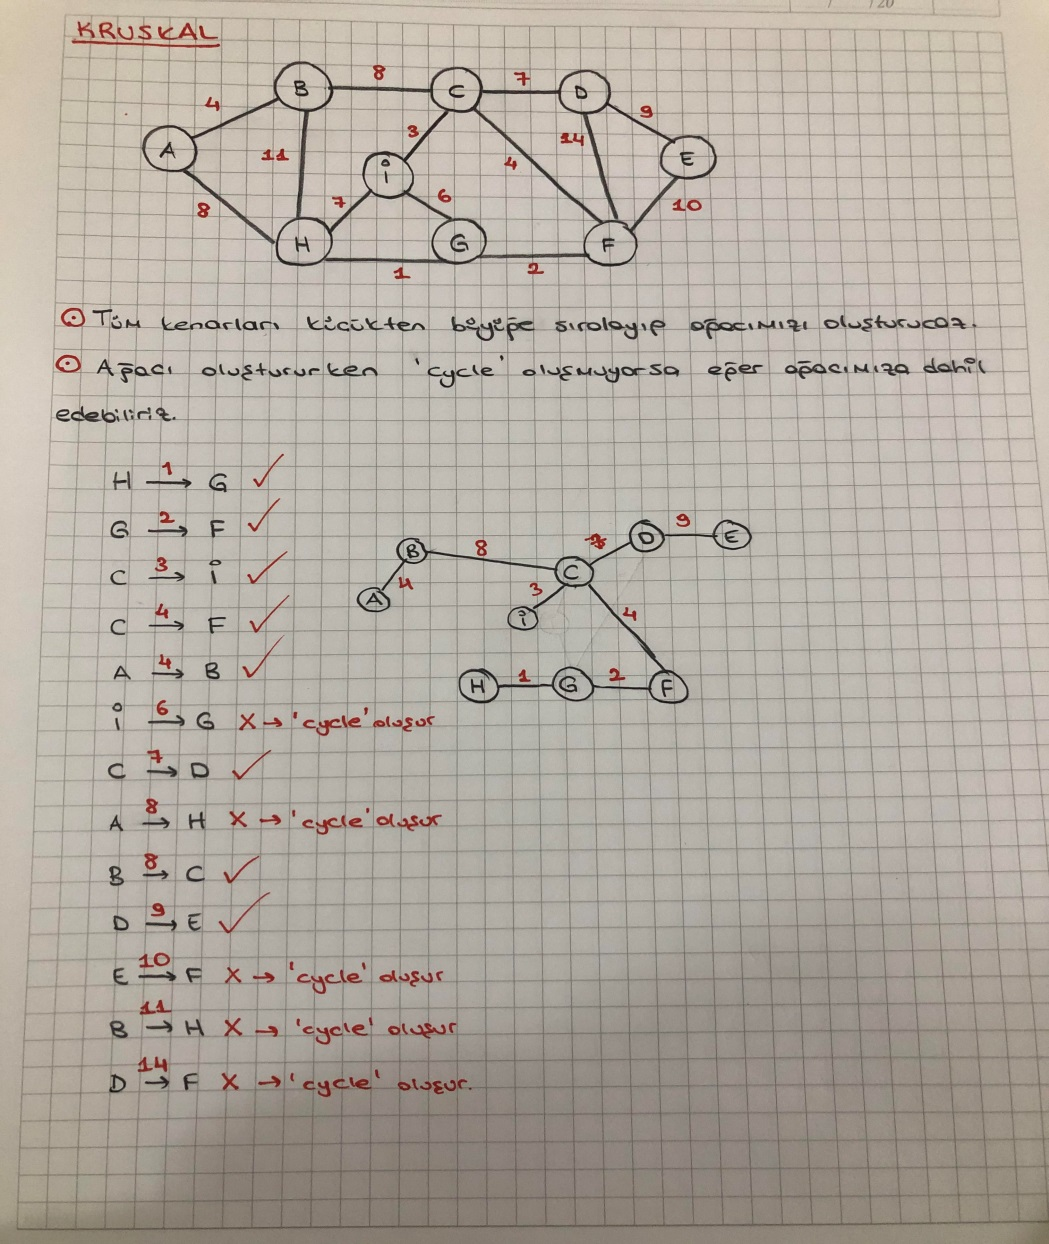 / /20
KRUSKAL
8 7
B C D
4 9
3 14
A 11 İ 4 E
8 7 6 10
H G F
1 2
⊙ Tüm kenarları küçükten büyüğe sıralayıp ağacımızı oluşturucaz.
⊙ Ağacı oluştururken 'cycle' oluşmuyorsa eğer ağacımıza dahil
edebiliriz.
H 1→ G ✓
G 2→ F ✓
C 3→ İ ✓
C 4→ F ✓
A 4→ B ✓
İ 6→ G X → 'cycle' oluşur
C 7→ D ✓
A 8→ H X → 'cycle' oluşur
B 8→ C ✓
D 9→ E ✓
E 10→ F X → 'cycle' oluşur
B 11→ H X → 'cycle' oluşur
D 14→ F X → 'cycle' oluşur.
D 9 E
B 8 7
C
4 3
A İ 4
H 1 G 2 F